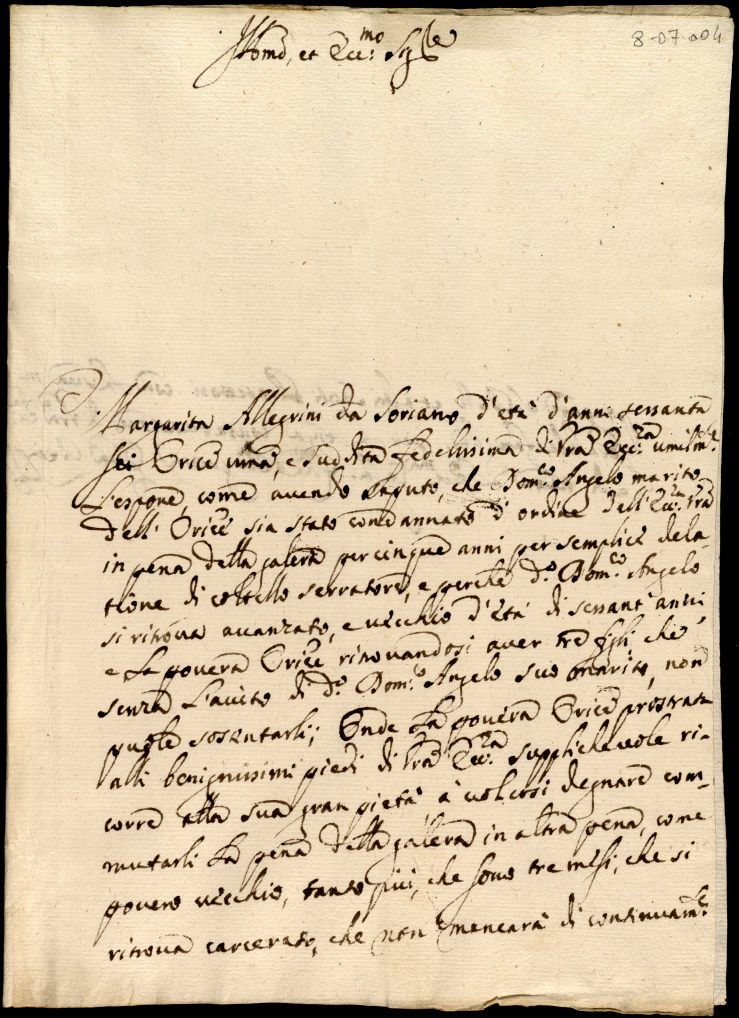 Illmo, et Ecc:mo Sig:re
8-07-004
Margarita Allegrini da Soriano d'età d'anni sessanta
sei Or.ice umã, e suddita fedelissima di Vrã Ecc:za umilm.te
L'espone, come avendo saputo, che Dom.co Angelo marito
dell' Or.ice sia stato condannato d'ordine dell'Ecc.za Vrã
in pena della galera per cinque anni per semplice dela-
tione di coltello serratore, e perche d.o Dom.co Angelo
si ritrova avanzato, e vecchio d'età di sessant'anni,
e la povera Or.ice ritrovandosi aver tre figli che
senza l'aiuto di d.o Dom.co Angelo suo marito, non
puole sosentarli; Onde la povera Or.ice prostrata
alli benignissimi piedi di Vrã Ecc.za supplichevole ri-
corre alla sua gran pietà à volersi degnare com-
mutarli la pena della galera in altra pena, come
povero vecchio, tanto più, che sono tre mesi, che si
ritrova carcerato, che non mancarà di continuam.te